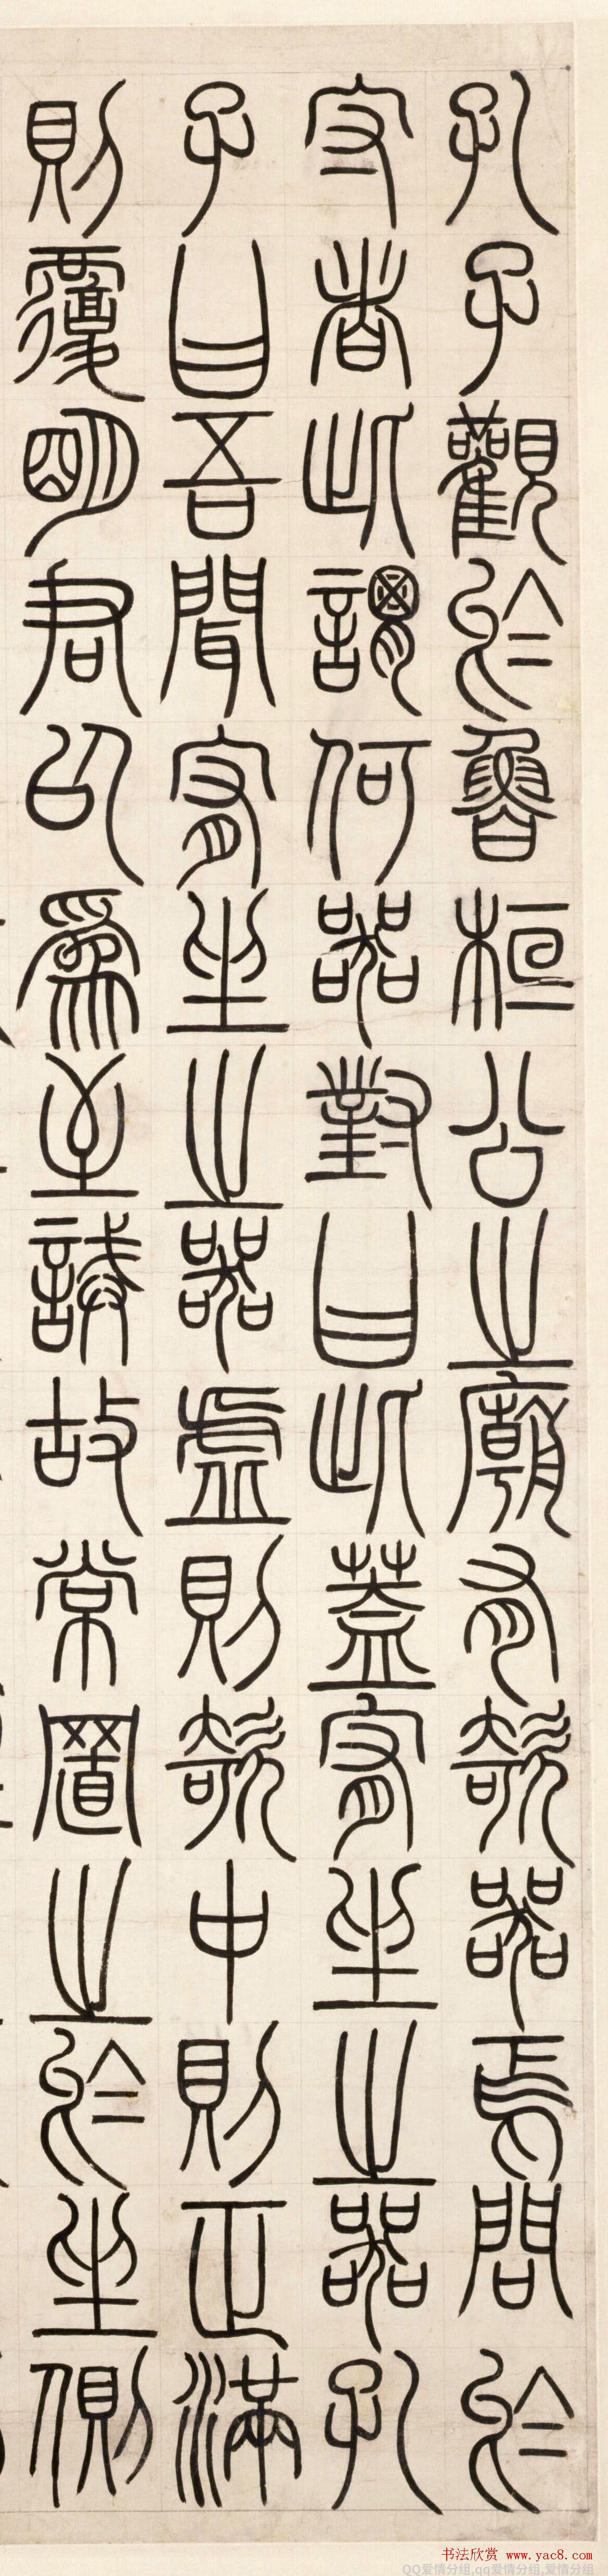 孔子觀於魯桓公之廟有欹器焉問於
守者此謂何器對曰此蓋宥坐之器孔
子曰吾聞宥坐之器虛則欹中則正滿
則覆明君以為至誡故常置之於坐側
书法欣赏 www.yac8.com
QQ爱情分组,qq爱情分组,爱情分组